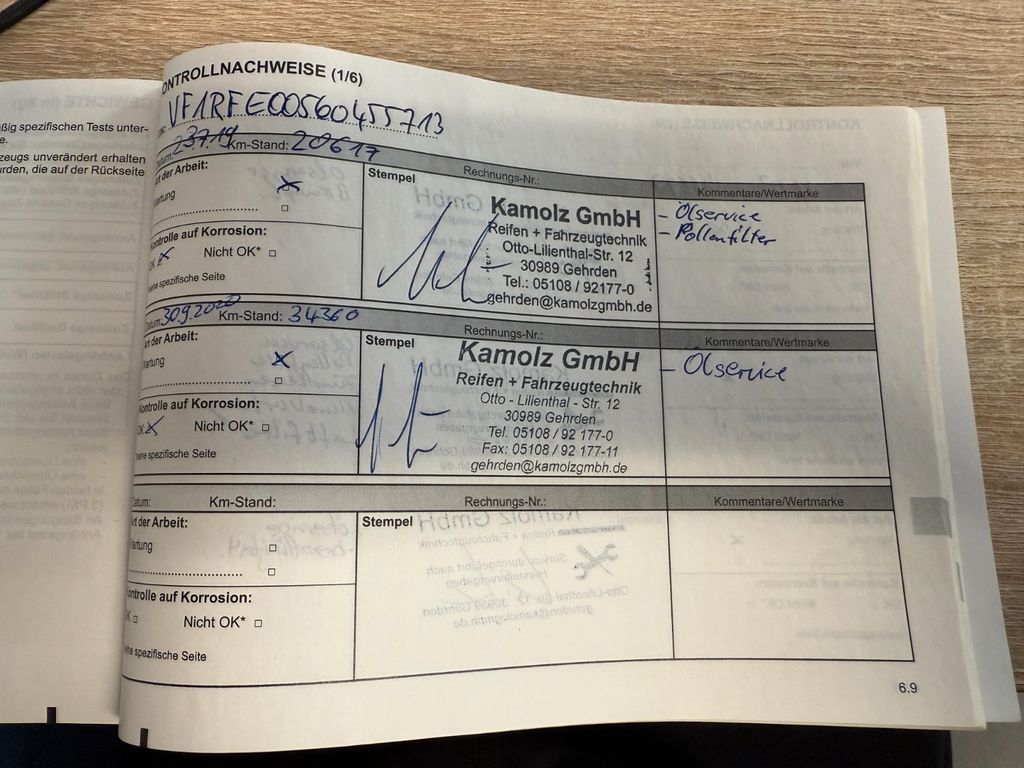 ßig spezifischen Tests unter-
e.
zeugs unverändert erhalten
urden, die auf der Rückseite
ONTROLLNACHWEISE (1/6)
VF1RFE00560455713
atum: 23.7.19 Km-Stand: 20617
Rechnungs-Nr.:
Kommentare/Wertmarke
rt der Arbeit:
artung
Stempel
Kamolz GmbH
Reifen + Fahrzeugtechnik
Otto-Lilienthal-Str. 12
30989 Gehrden
Tel.: 05108 / 92177-0
gehrden@kamolzgmbh.de
- Ölservice
- Pollenfilter
ontrolle auf Korrosion:
OK Nicht OK*
iehe spezifische Seite
Datum: 30.9.2020 Km-Stand: 34360
Rechnungs-Nr.:
Kommentare/Wertmarke
Art der Arbeit:
artung
Stempel
Kamolz GmbH
Reifen + Fahrzeugtechnik
Otto - Lilienthal - Str. 12
30989 Gehrden
Tel. 05108 / 92 177-0
Fax: 05108 / 92 177-11
gehrden@kamolzgmbh.de
- Ölservice
Kontrolle auf Korrosion:
OK Nicht OK*
iehe spezifische Seite
Datum: Km-Stand:
Rechnungs-Nr.:
Kommentare/Wertmarke
Art der Arbeit:
artung
Stempel
ontrolle auf Korrosion:
K Nicht OK*
ehe spezifische Seite
6.9